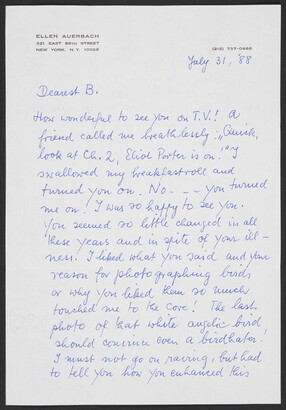 ELLEN AUERBACH
321 EAST 85TH STREET
NEW YORK, N.Y. 10028
(212) 737-0888
July 31, '88
Dearest B.
How wonderful to see you on T.V.! A
friend called me breathlessly: "Quick,
look at Ch. 2, Eliot Porter is on!" I
swallowed my breakfastroll and
turned you on. No - - - you turned
me on! I was so happy to see you.
You seemed so little changed in all
these years and in spite of your ill-
ness. I liked what you said and your
reason for photographing birds
or why you liked them so much
touched me to the core! The last
photo of that white angelic bird
should convince even a birdhater!
I must not go on raving, but had
to tell you how you enhanced this